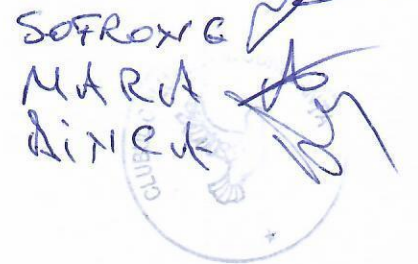 SOFRONE
MARIA
DINCA
CLUB